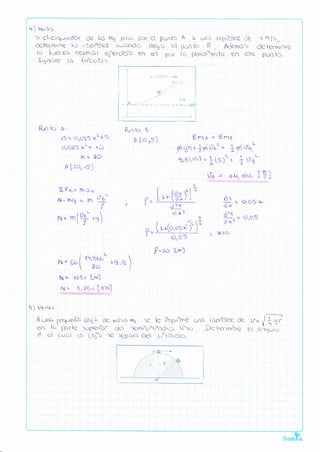 El esquiador de 60 mg pasa por el punto A a una rapidez de 5 m/s,
determine su rapidez cuando llega al punto B. Además determine
la fuerza normal ejercida en él por la pendiente en ese punto.
Ignore la fricción.
Punto A:
15 = 0,025x² + 5
0,025x² = 10
x = 20
A(20, 15)
Punto B
B(0, 5)
EM A = EM B
9,8(10) + ½(5)² = ½ v_B²
v_B = 14,866 [m/s]
ΣFn = m an
N - mg = m v_B²/ρ
N = m(v_B²/ρ + g)
dy/dx = 0,05x
d²y/dx² = 0,05
x=0
0,05
ρ=20 [m]
N = 60(14,866²/20 + 9,8)
N = 1251 [N]
N = 1,251 [kN]
5)
Una pequeña caja de masa m, se le imprime una rapidez de v =
en la parte superior del semicilindro liso. Determine el ángulo
θ al cual la caja se separa del cilindro.